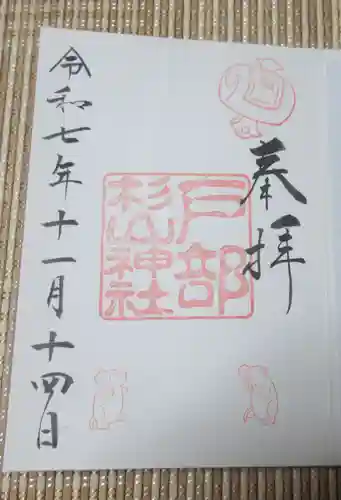 奉拝
戸部
杉山神社
令和七年十一月十四日